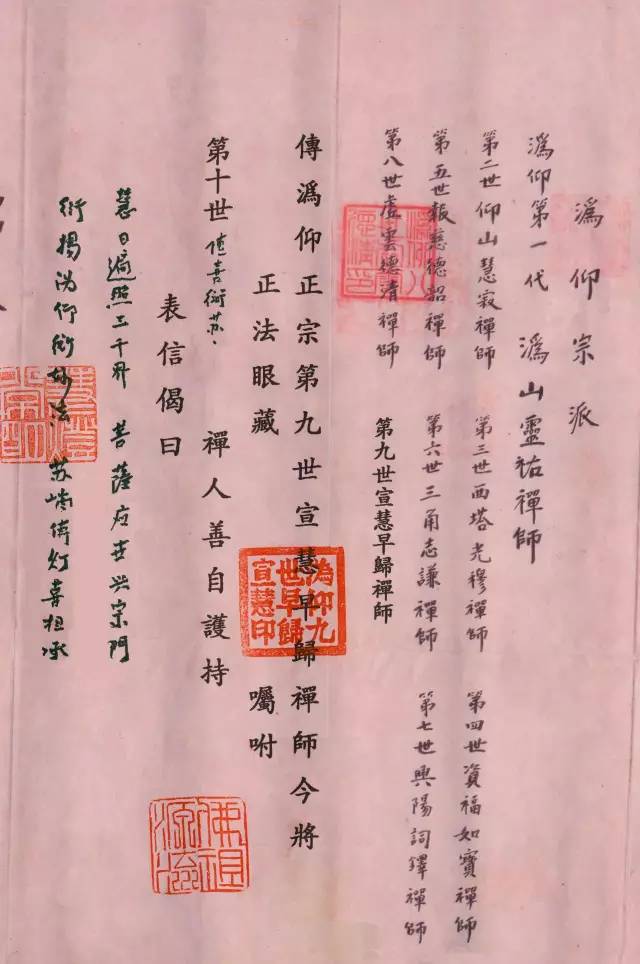 溈仰宗派
溈仰第一代 溈山靈祐禪師
第二世仰山慧寂禪師 第三世西塔光穆禪師 第四世資福如寶禪師
第五世報慈德韶禪師 第六世三角志謙禪師 第七世興陽詞鐸禪師
第八世虛雲德清禪師 第九世宣慧早歸禪師
傳溈仰正宗第九世宣慧早歸禪師今將
正法眼藏 囑咐
第十世 禪人善自護持
表信偈曰
慧日遍照三千界 菩薩应世兴宗门
衍揚沩仰衍妙法 苏 传灯喜担承
溈仰九世早歸宣慧印
佛祖源流